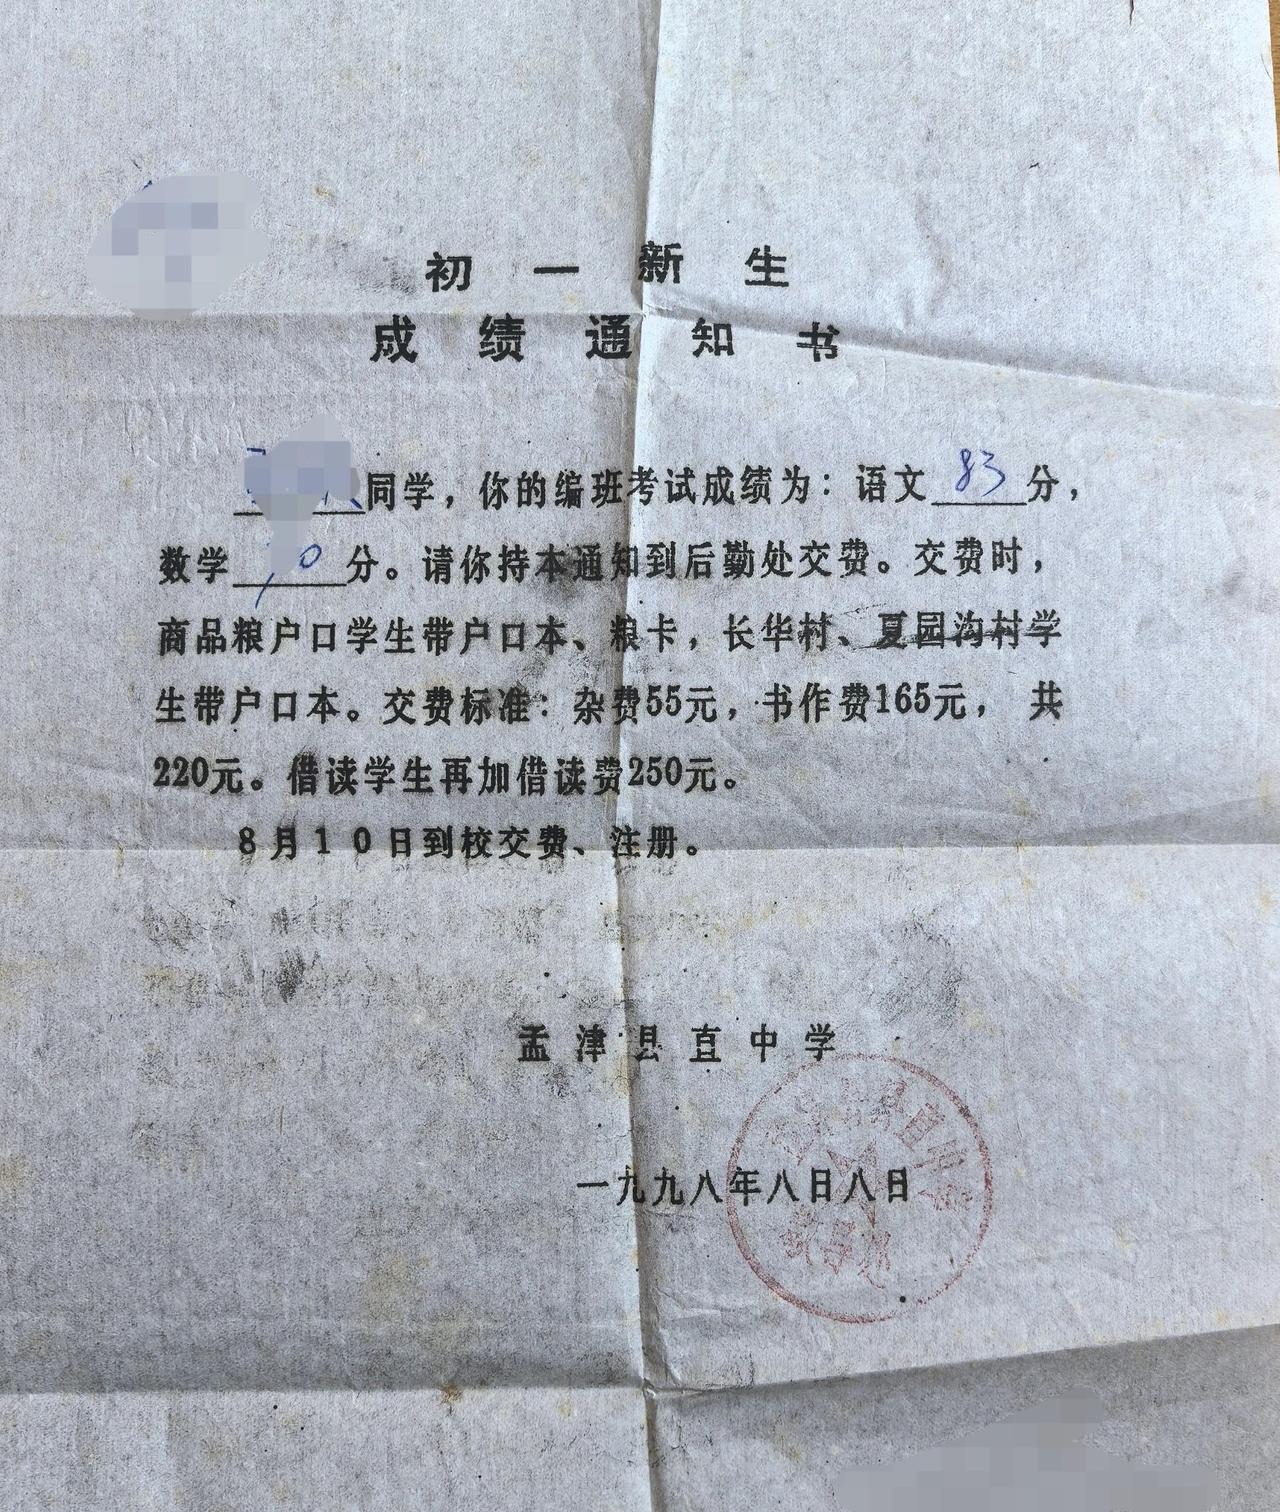 初一新生
成绩通知书
同学，你的编班考试成绩为：语文83分，
数学 分。请你持本通知到后勤处交费。交费时，
商品粮户口学生带户口本、粮卡，长华村、夏园沟村学
生带户口本。交费标准：杂费55元，书作费165元， 共
220元。借读学生再加借读费250元。
8月10日到校交费、注册。
孟津县直中学
一九九八年八日八日
县直中学
教导处